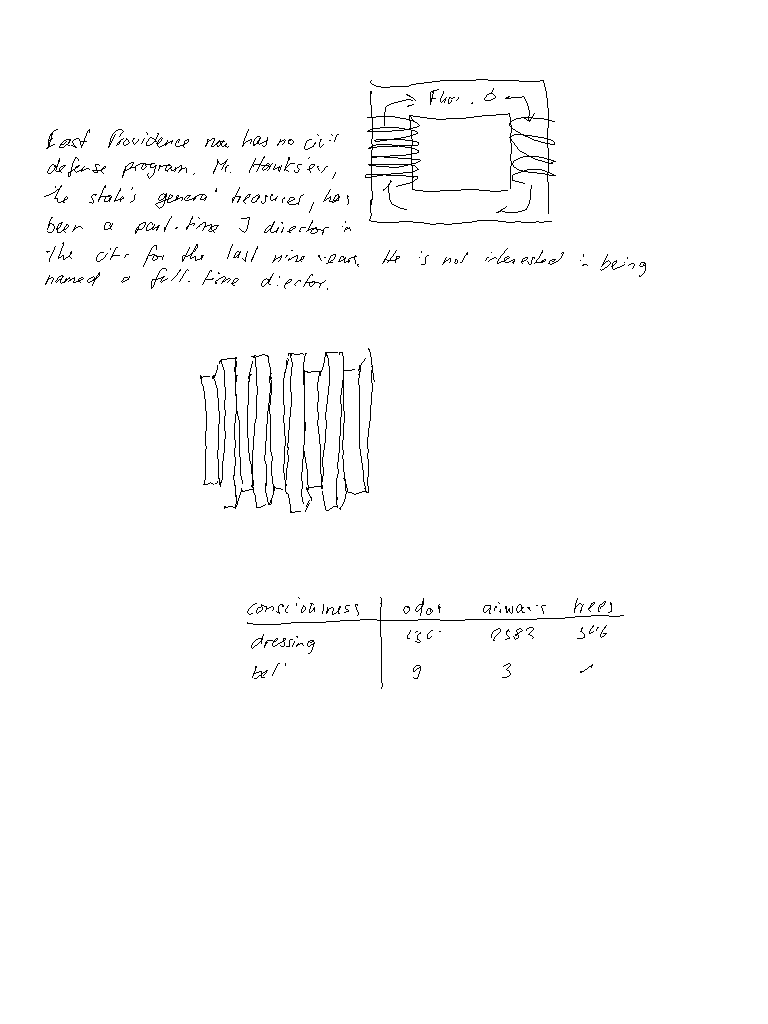 East Providence now has no civil
defense program. Mr. Hawksley,
the state's general treasurer, has
been a part-time J director in
the city for the last nine years. He is not interested in being
named a full-time director.
consciousness odor airways trees
dressing 2382 546
9 3